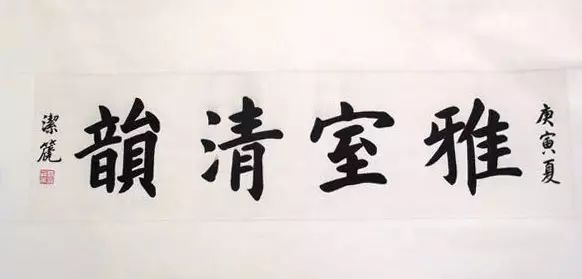 庚寅夏
雅室清韻
潔篪